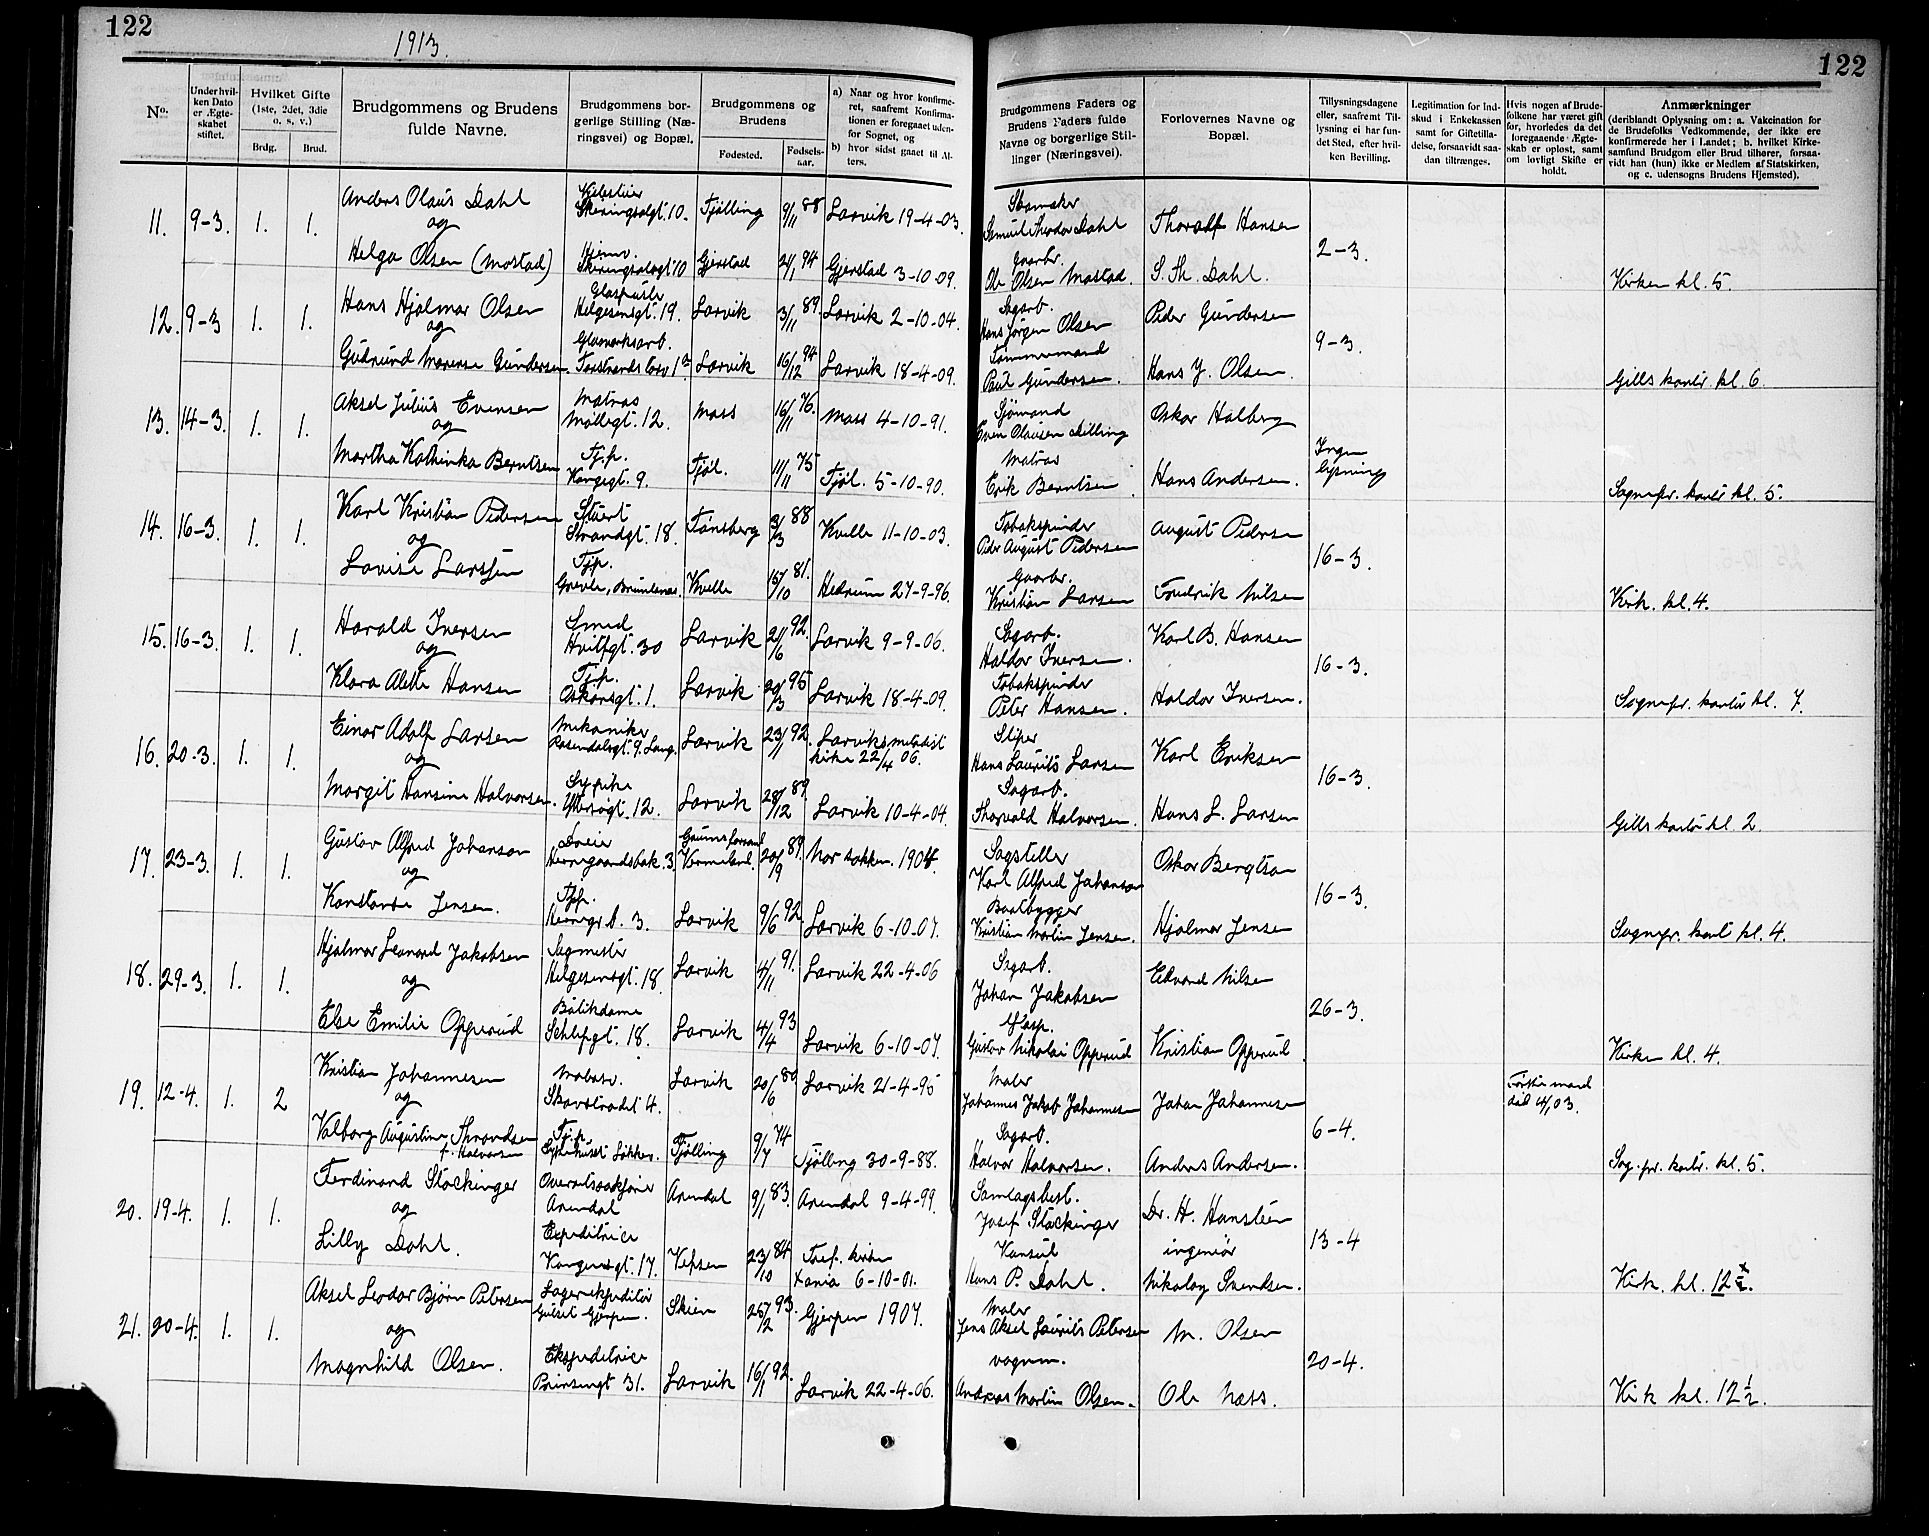 122
1913.
122
No.
Under hvilken Dato er Ægteskabet stiftet.
Hvilket Gifte (1ste, 2det, 3die o. s. v.)
Brdg.
Brud.
Brudgommens og Brudens fulde Navne.
Brudgommens borgerlige Stilling (Næringsvei) og Bopæl.
Brudgommens og Brudens
Fødested.
Fødselsaar.
a) Naar og hvor konfirmeret, saafremt Konfirmationen er foregaaet udenfor Sognet, og
b) hvor sidst gaaet til Alters.
Brudgommens Faders og Brudens Faders fulde Navne og borgerlige Stillinger (Næringsvei).
Forlovernes Navne og Bopæl.
Tillysningsdagene eller, saafremt Tillysning ei har fundet Sted, efter hvilken Bevilling.
Legitimation for Indskud i Enkekassen samt for Giftetilladelse, forsaavidt saadan tiltrænges.
Hvis nogen af Brudefolkene har været gift før, hvorledes da det foregaaende Ægteskab er opløst, samt om lovligt Skifte er holdt.
Anmærkninger
(deriblandt Oplysning om: a. Vakcination for de Brudefolks Vedkommende, der ikke ere konfirmerede her i Landet; b. hvilket Kirkesamfund Brudgom eller Brud tilhører, forsaavidt han (hun) ikke er Medlem af Statskirken, og c. udensogns Brudens Hjemsted).
11. 9-3. 1. 1. Anders Olaus Dahl Skiringsalgt. 10. Tjølling 9/11 88 Larvik 19-4-03. Skomaker Samuel Theodor Dahl Thoralf Hansen 2-3.
og
Helga Olsen (Mostad) Hjemv. Skiringsalsgt 10 Gjerstad 24/1 94 Gjerstad 3-10-09. Gaarbr. Ole Olsen Mostad. S. Th. Dahl. Kirken kl. 5.
12. 9-3 1. 1. Hans Hjalmar Olsen Glaspuster Helgesensgt. 19. Larvik 3/11 89. Larvik 2-10-04. Sagarb. Hans Jørgen Olsen Peder Gundersen 9-3.
og
Gudrund Marense Gundersen. Glasverksarb. Torstrands torv 1 Larvik 16/12 94 Larvik 18-4-09. Tømmermand Paul Gundersen. Hans J. Olsen. Gills kontr kl. 6.
13. 14-3. 1. 1. Aksel Julius Evensen Matros Møllegt. 12. Moss 16/11 76. Moss 4-10-91. Sjømand Even Olausen Dilling Oskar Halberg Ingen lysning
og
Martha Kathinka Berntsen Tj.p. Kongegt. 9. Tjøl. 11/11 75 Tjøl. 5-10-90. Matros Erik Berntsen Hans Andersen. Sognepr. kontr kl. 5.
14. 16-3. 1. 1. Karl Kristian Pedersen Stuert Strandgt. 18. Tønsberg 3/3 88 Kvelle 11-10-03. Tobakspinder Peder August Pedersen August Pedersen 16-3.
og
Lovise Larssen Tjp. Grevle, Brunlanes. Kvelle 15/10 81. Hedrum 27-9-96. Gaarbr. Kristian Larsen Fredrik Nilsen Kirk. kl. 4.
15. 16-3. 1. 1. Harald Iversen Smed Hvilfgt. 30 Larvik 21/6 92. Larvik 9-9-06. Sagarb. Haldor Iversen. Karl B. Hansen 16-3.
og
Klara Alette Hansen Tjp. Oskarsgt. 1. Larvik 20/3 95 Larvik 18-4-09. Tobakspinder Peter Hansen. Haldor Iversen. Sognepr. kontor kl. 7.
16. 20-3. 1. 1. Einar Adolf Larsen Mekaniker Rosendalsgt. 9. Lang. Larvik 23/11 92. Larviks metodist kirke 22/4 06. Sliper Hans Laurits Larsen Karl Eriksen 16-3.
og
Margit Hansine Halvorsen. Sypike 12. Larvik 28/12 89. Larvik 10-4-04. Sagarb. Thorvald Halvorsen. Hans L. Larsen Gills kontor kl. 2.
17. 23-3. 1. 1. Gustav Alfred Johanson Dreier Herregaardsbak. 3. Vermeland. 20/9 89. Norsokken. 1904. Sagstiller Karl Alfred Johanson Oskar Bergtson 16-3.
og
Konstanse Jensen. Tjp. Herregr. b. 3. Larvik 9/6 92. Larvik 6-10-07. Baatbygger Kristian Martin Jensen. Hjalmar Jensen Sognepr. kont kl. 4.
18. 29-3. 1. 1. Hjalmar Leonard Jakobsen Sagmester Helgesensgt. 18. Larvik 4/11 91. Larvik 22-4-06 Sagarb. Johan Jakobsen Edvard Nilsen 26-3.
og
Else Emilie Opperud Butikdame Schlipgt. 18. Larvik 4/4 93 Larvik 6-10-07. Gustav Nikolai Opperud Kristian Opperud Kirken kl. 4.
19. 12-4. 1. 2 Kristian Johannesen Larvik 20/6 80 Larvik 21-4-95 Maler Johannes Jakob Johannesen Johan Johannesen 6-4. Første mand død 4/1 03.
og
Valborg Augustine Thrandsen f. Halvorsen Tj.p. Sykehuset Løkken. Tjølling 9/7 74 Tjølling 30-9-88. Sagarb. Halvor Halvorsen. Anders Andersen. Sog. pr. kontr. kl. 5.
20. 19-4. 1. 1. Ferdinand Stockinger Overretssakfører Arendal Arendal 9/1 83. Arendal 9-4-99. Samlagsbest. Josef Stockinger Dr. H. Hansteen 13-4
og
Lilly Dahl. Expeditrice Kongensgt. 17. Vefsen 23/10 84 Tref. kirke Xania 6-10-01. Konsul Hans P. Dahl. ingeniør Nikolay Svendsen. Kirk. kl. 12 ½.
21. 20-4. 1. 1. Aksel Leodor Bjørn Petersen Lagerekspeditør Gulset Gjerpen. Skien 28/2 93. Gjerpen 1907. Maler Jens Aksel Laurits Petersen M. Olsen 20-4.
og
Magnhild Olsen. Ekspeditrice Prinsensgt 31. Larvik 16/1 92. Larvik 22-4-06. vognm. Andreas Martin Olsen. Ole Næss. Kirk kl. 12 ½.